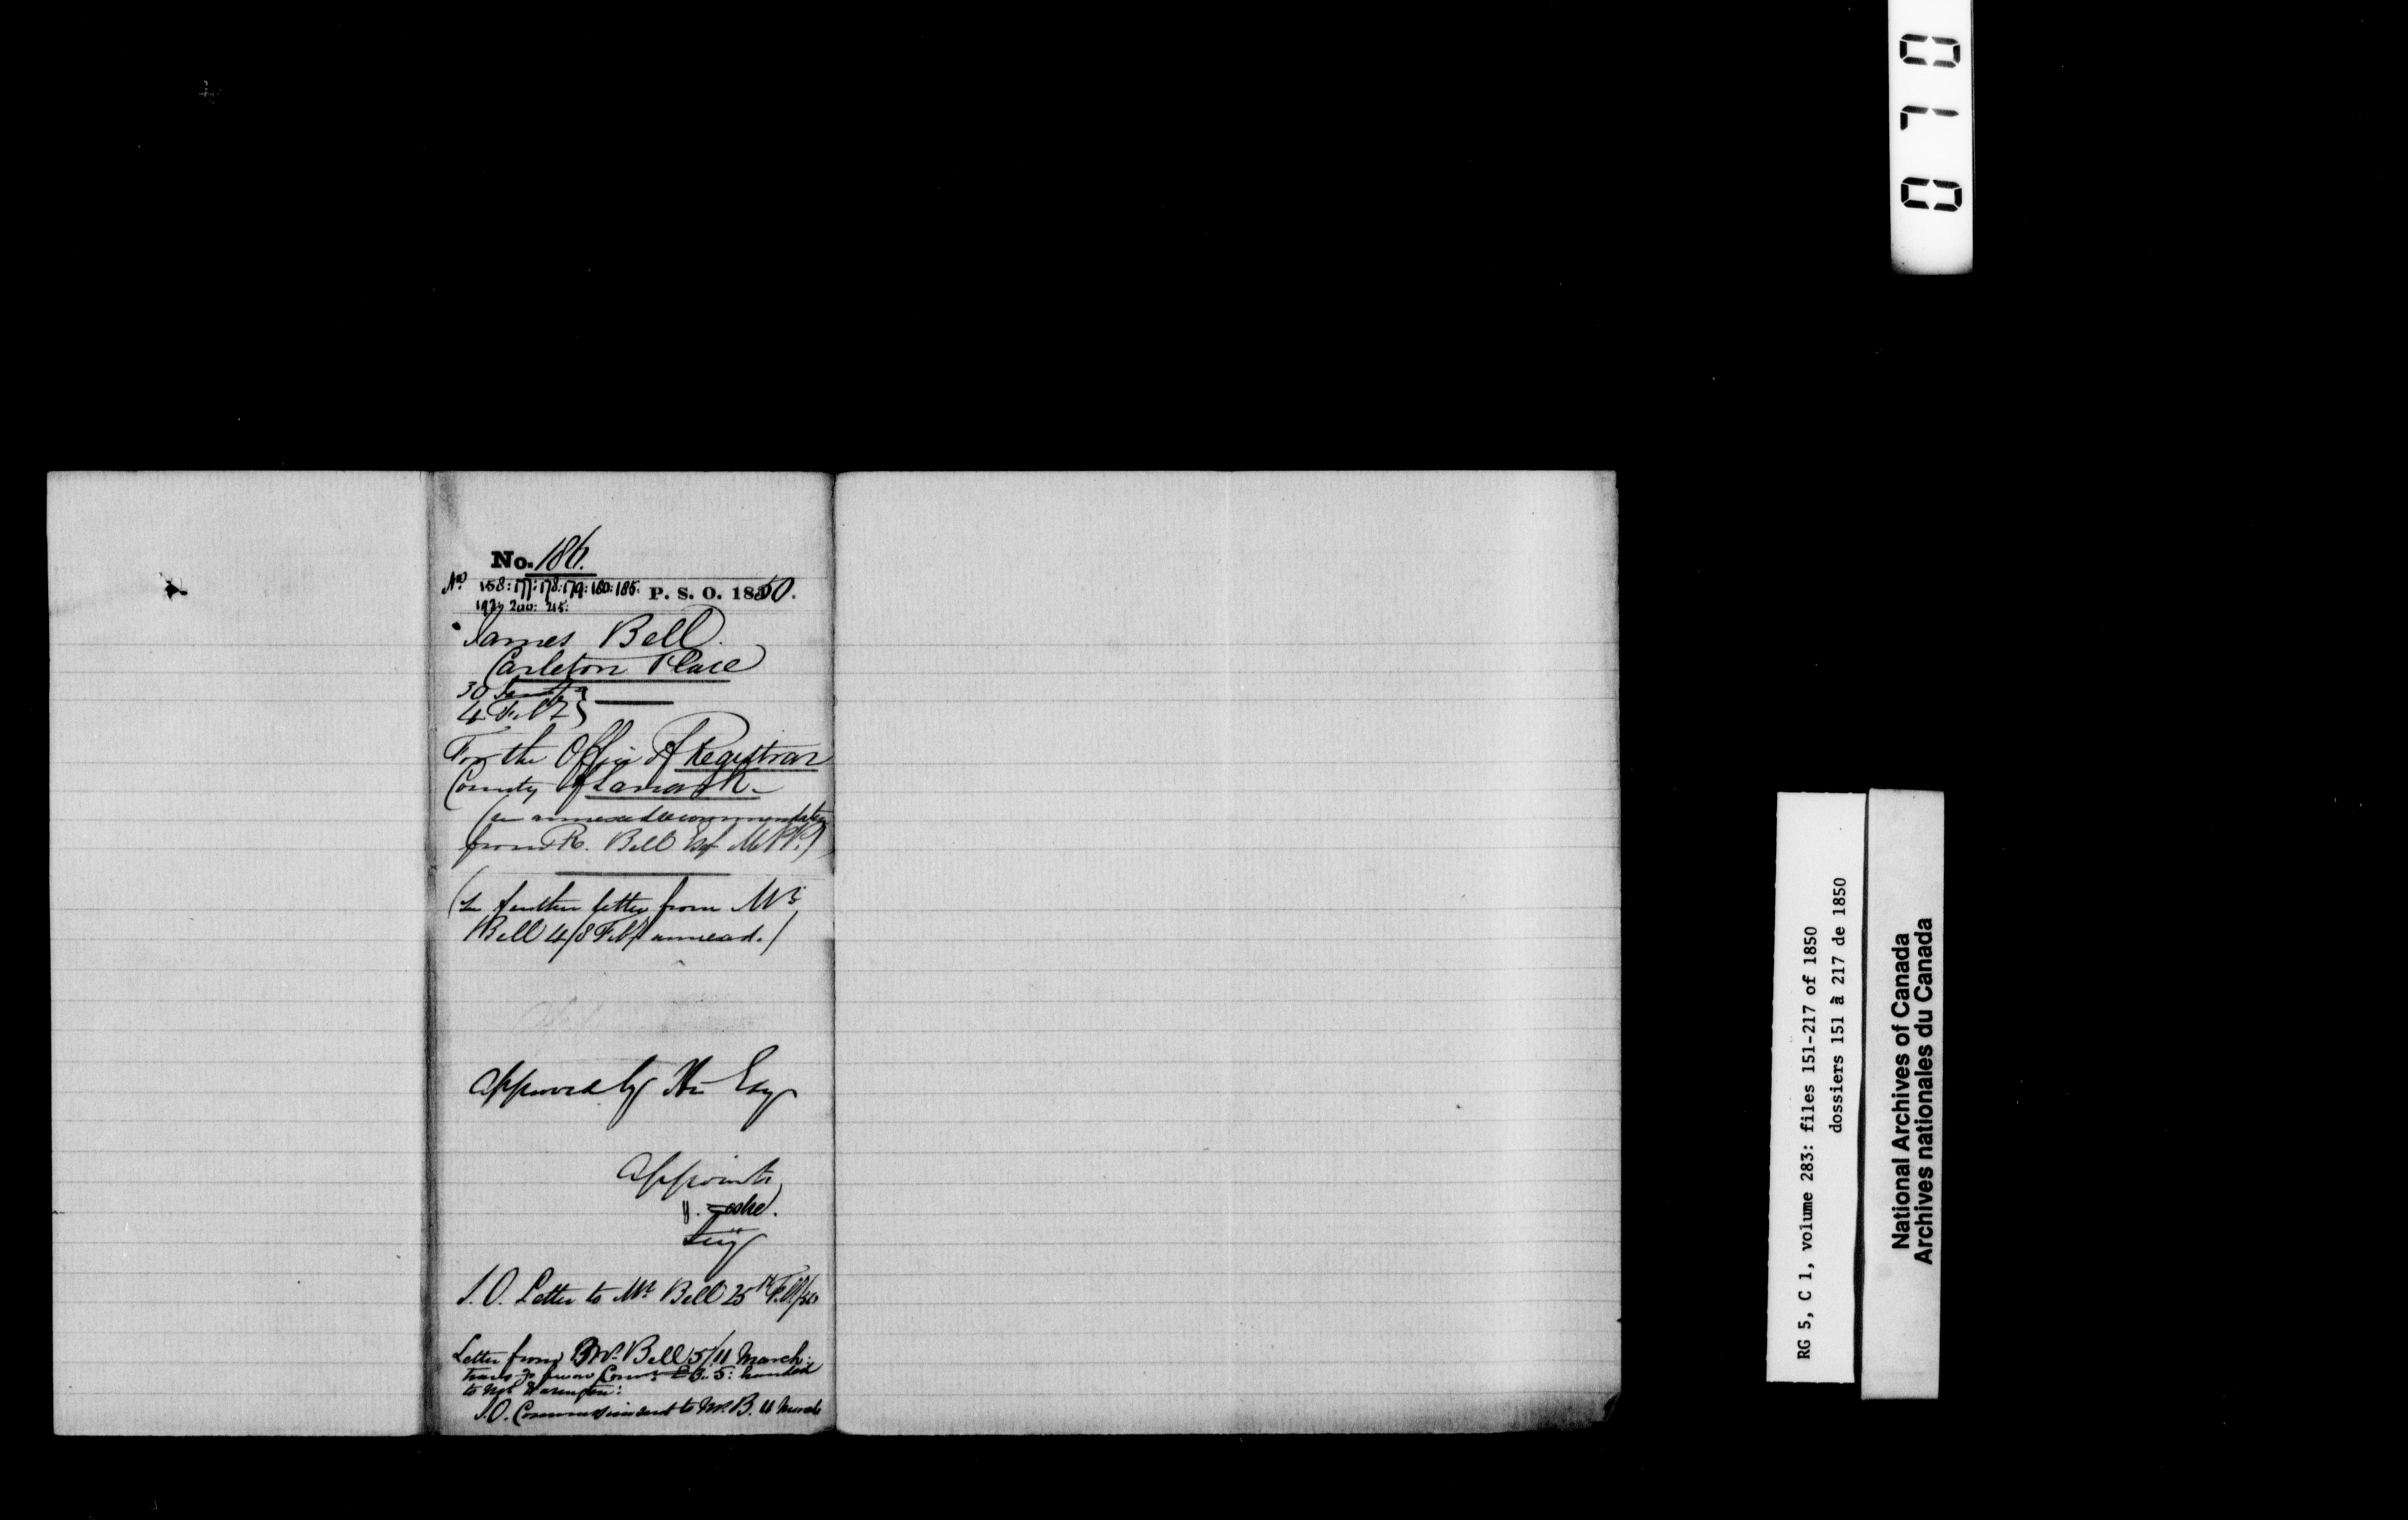 No. 186.
Nos 158: 177: 178: 179: 180: 185. P. S. O. 1850.
200: 215:
James Bell.
Carleton Place
30
4 Feby
For the Office of Registrar
County of Lanark -
annexed recommendation
from R. Bell Esq M.P.P.)
further letter from Mr
Bell 4/8 Feby annexed.)
Approved by His Excy
Appoint
S. O. Letter to Mr Bell 25th Feby/50
Letter from Mr. Bell 5/11 March:
handed
to Mr Harington:
S.O. Commission sent to Mr. B. 11 March
0710
RG 5, C 1, volume 283: files 151-217 of 1850
dossiers 151 à 217 de 1850
National Archives of Canada
Archives nationales du Canada